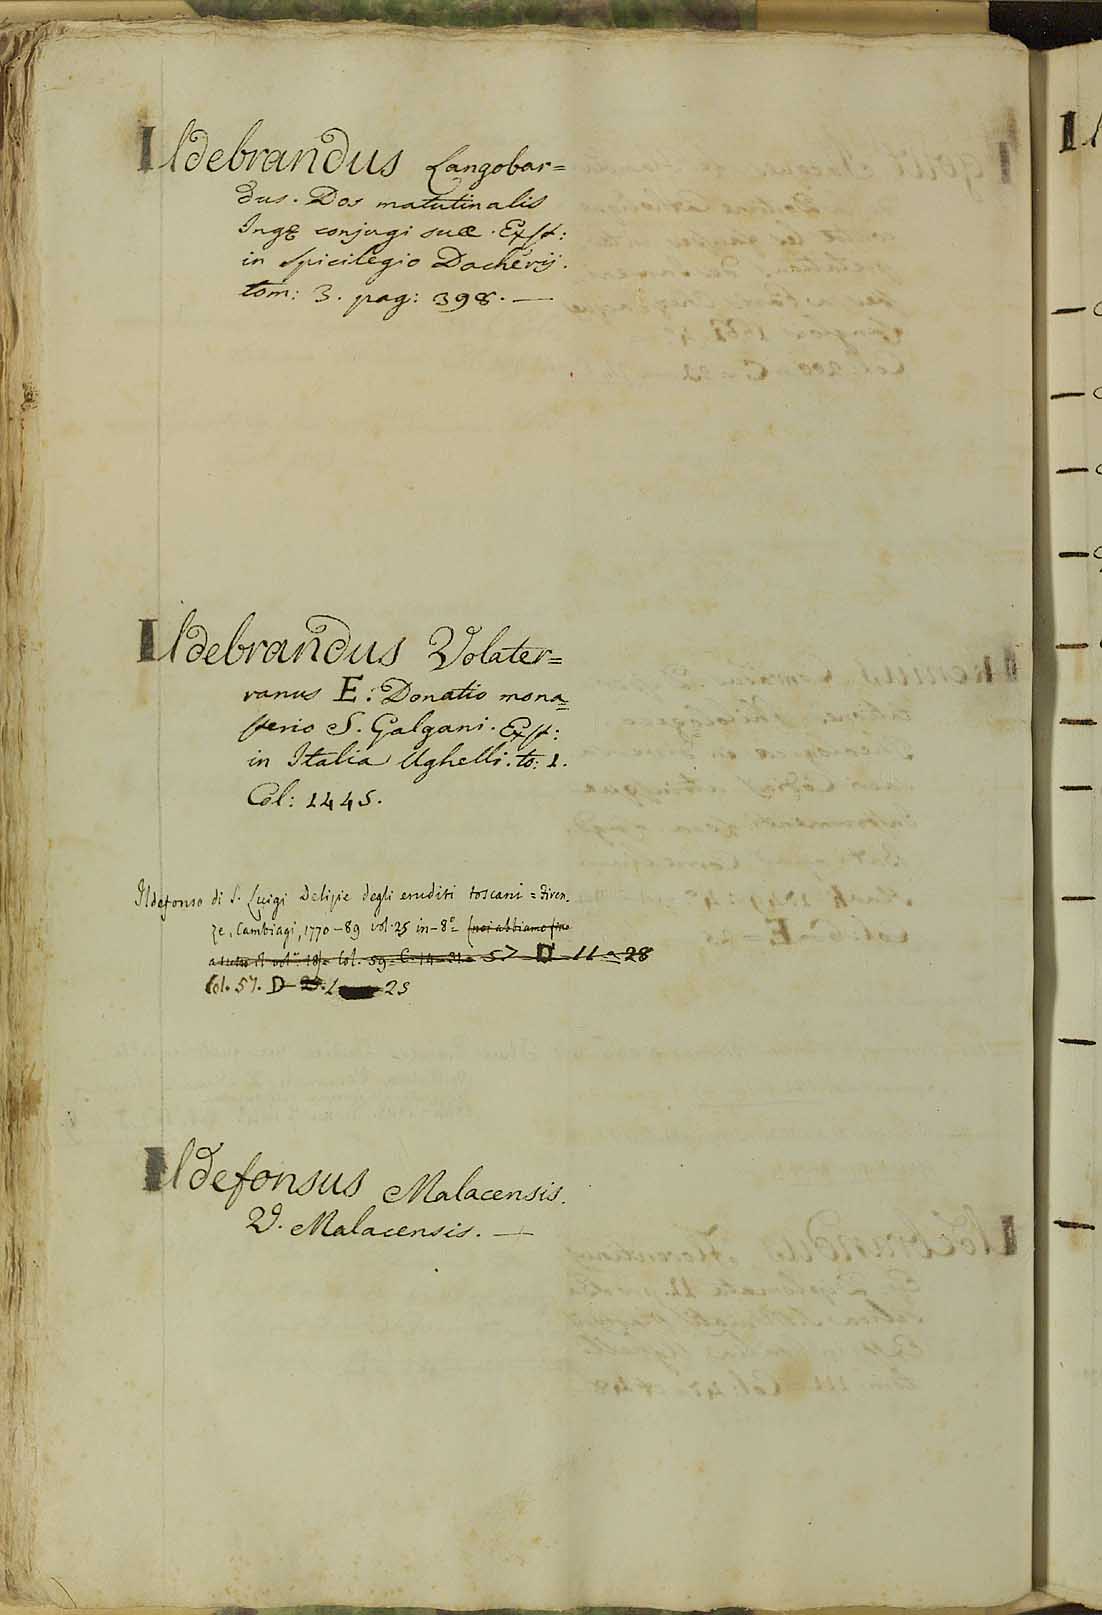 Ildebrandus Langobar=
dus. Dos matutinalis
Ingę conjugi suæ. Exst:
in Spicilegio Dacherij.
tom: 3. pag: 398. —
Ildebrandus Volater=
ranus E: Donatio mona=
sterio S. Galgani. Exst:
in Italia Ughelli. to: 1.
Col: 1445.
Ildefonso di S. Luigi Delizie degli eruditi toscani = Firen.
ze, Cambiagi, 1770-89 vol. 25 in-8º = (noi abbiamo fino
a tutto il vol. 18) = Col. 59. C. 14-31 = 57 D 11 a 28
Col. 57. D 25
Ildefonsus Malacensis.
V. Malacensis. —